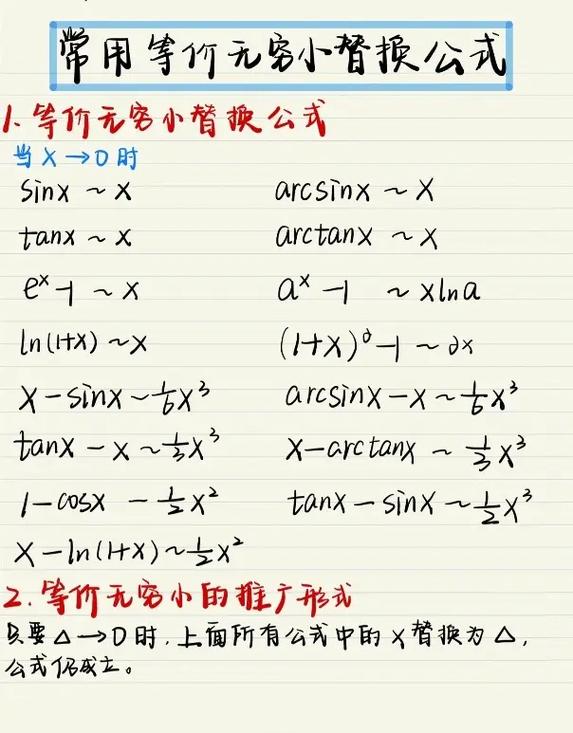 常用等价无穷小替换公式
1. 等价无穷小替换公式
当 x→0 时
sinx ~ x    arcsinx ~ x
tanx ~ x    arctanx ~ x
eˣ-1 ~ x    aˣ-1 ~ xlna
ln(1+x) ~x    (1+x)ᵃ-1 ~ ax
x-sinx~1/6x³    arcsinx-x~1/6x³
tanx-x~1/3x³    x-arctanx ~ 1/3x³
1-cosx - 1/2x²    tanx-sinx~1/2x³
x-ln(1+x)~1/2x²
2. 等价无穷小的推广形式
只要 △→0 时, 上面所有公式中的 x 替换为 △,
公式仍成立。